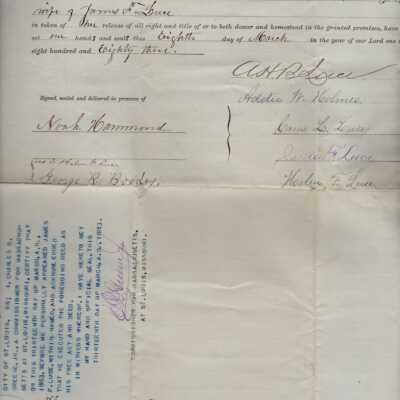 wife of James F. Luce
in token of our release of all right and title of or to both dower and homestead in the granted premises, have
set our hands and seals this Eighth day of March in the year of our Lord one
eight hundred and Eighty three.
Signed, sealed and delivered in presence of
Noah Hammond
George R.
A H B Luce
Addie W. Holmes
L.
F. Luce
F. Luce
CITY OF ST. LOUIS, SS; I, CHARLES D.
GREENE, JR., A COMMISSIONER FOR MASSACHU-
SETTS AT ST. LOUIS, MISSOURI, CERTIFY THAT
ON THIS THIRTEENTH DAY OF MARCH, A.D.,
1883, BEFORE ME PERSONALLY APPEARED JAMES
F. LUCE, WITHIN NAMED, AND ACKNOWLEDGED
THAT HE EXECUTED THE FOREGOING DEED AS
HIS FREE ACT AND DEED.
IN WITNESS WHEREOF, I HAVE HERETO SET
MY HAND AND OFFICIAL SEAL, THIS
THIRTEENTH DAY OF MARCH, A.D., 1883.
COMMISSIONER FOR MASSACHUSETTS,
AT ST. LOUIS, MISSOURI.